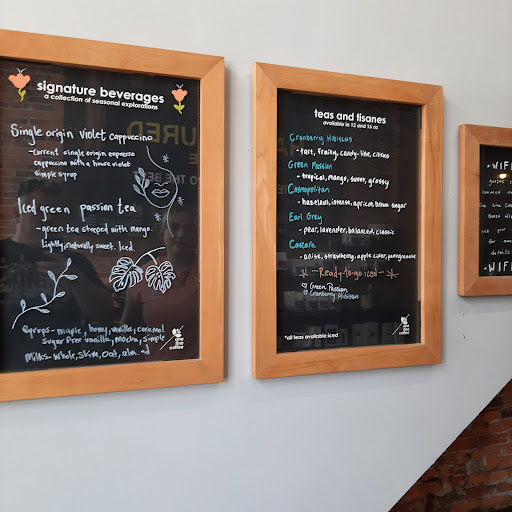 signature beverages
a collection of seasonal explorations
Single origin violet cappuccino
-current single origin espresso
cappuccino with a house violet
simple syrup
Iced green passion tea
-green tea steeped with mango.
Lightly, naturally sweet. Iced
Syrups- maple, honey, vanilla, caramel
Sugar free vanilla, mocha, simple
Milks- Whole, Skim, Oat, alm d
one line coffee
teas and tisanes
available in 12 and 16 oz
Cranberry Hibiscus
-tart, fruity, candy-like, citrus
Green Passion
-tropical, mango, sweet, grassy
Cosmopolitan
-hazelnut, intense, apricot, brown sugar
Earl Grey
-pear, lavender, balanced, classic
Cascara
-anise, strawberry, apple cider, pomegranate
-Ready-to-go iced-
Green Passion
Cranberry Hibiscus
*all teas available iced
one line coffee
WIFI
WIFI